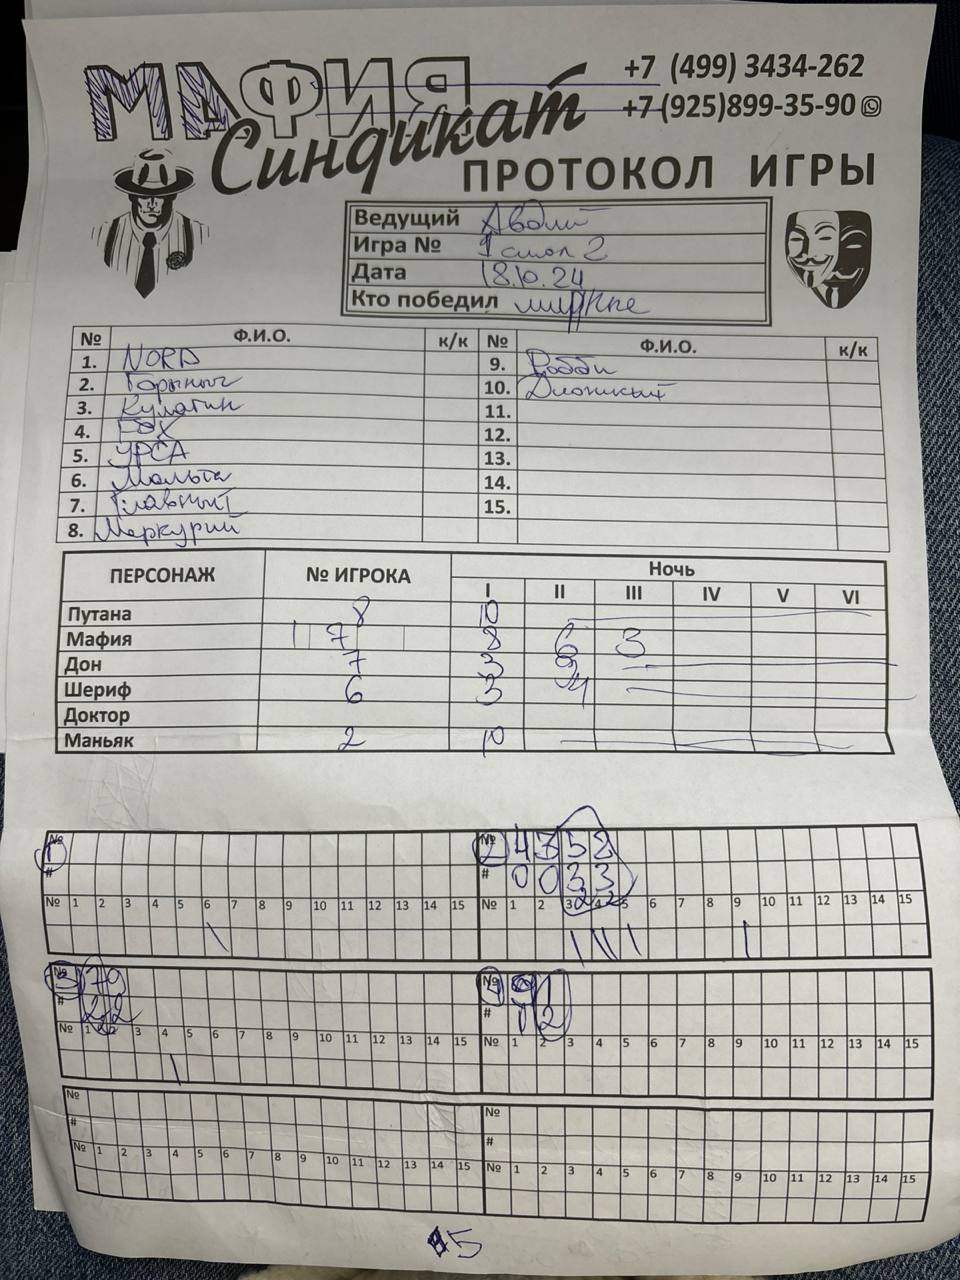 МАФИЯ
Синдикат
+7 (499) 3434-262
+7 (925)899-35-90
ПРОТОКОЛ ИГРЫ
Ведущий
Игра № 1 стол 2
Дата 18.10.24
Кто победил мирные
№ Ф.И.О. к/к № Ф.И.О. к/к
1. NORD 9. Робби
2. Горыныч 10.
3. Кулагин 11.
4. 12.
5. УРСА 13.
6. Мальта 14.
7. Главный 15.
8. Меркурий
ПЕРСОНАЖ № ИГРОКА Ночь
I II III IV V VI
Путана 8 10
Мафия 1 7 8 6 3
Дон 7 3 9
Шериф 6 3 4
Доктор
Маньяк 2 10
№ № 4 3 5 2
1 2
# # 0 0 3 3
2 2
№ 1 2 3 4 5 6 7 8 9 10 11 12 13 14 15 № 1 2 3 4 5 6 7 8 9 10 11 12 13 14 15
№ 7 9 № 9 1
3 4
# 2 2 # 1 2
№ 1 2 3 4 5 6 7 8 9 10 11 12 13 14 15 № 1 2 3 4 5 6 7 8 9 10 11 12 13 14 15
№ №
# #
№ 1 2 3 4 5 6 7 8 9 10 11 12 13 14 15 № 1 2 3 4 5 6 7 8 9 10 11 12 13 14 15
5